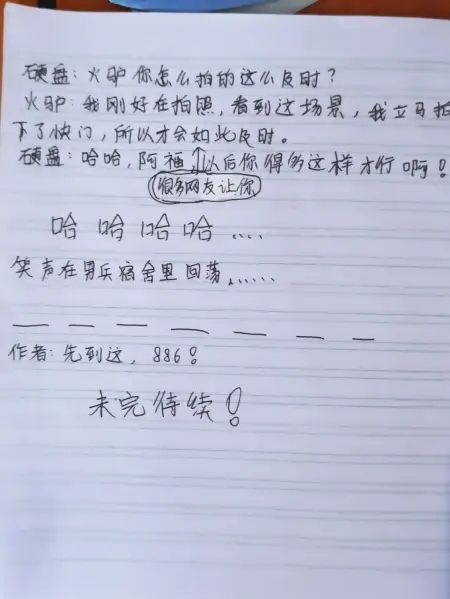 硬盘：火驴你怎么拍的这么及时？
火驴：我刚好在拍照，看到这场景，我立马拍
下了快门，所以才会如此及时。
硬盘：哈哈，阿福以后你得多这样才行啊！
很多网友让你
哈 哈 哈 哈 ....
笑声在男兵宿舍里回荡......
作者：先到这，886！
未完待续！